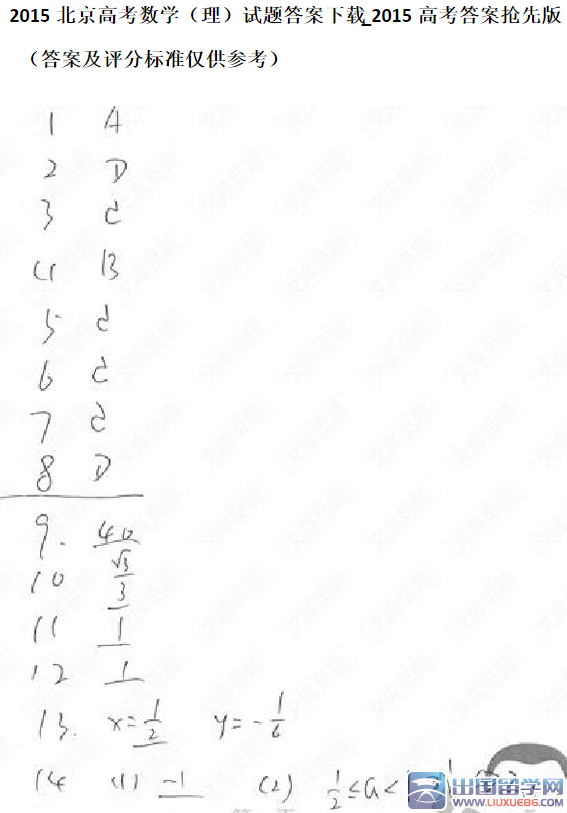 2015 北京高考数学（理）试题答案下载_2015 高考答案抢先版
（答案及评分标准仅供参考）
1 A
2 D
3 C
4 B
5 C
6 C
7 C
8 D
9. 40
10 √3/3
11 1
12 1
13. x=1/2 y=-1/6
14 (1) -1 (2) 1/2≤a<
出国留学网
WWW.LIUXUE86.COM